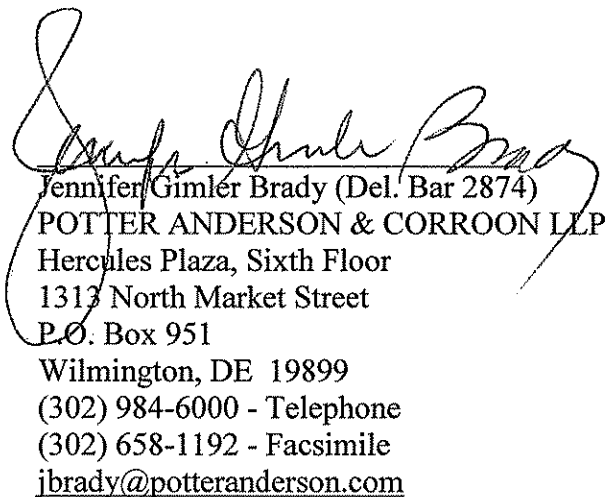 Jennifer Gimler Brady
Jennifer Gimler Brady (Del. Bar 2874)
POTTER ANDERSON & CORROON LLP
Hercules Plaza, Sixth Floor
1313 North Market Street
P.O. Box 951
Wilmington, DE 19899
(302) 984-6000 - Telephone
(302) 658-1192 - Facsimile
jbrady@potteranderson.com